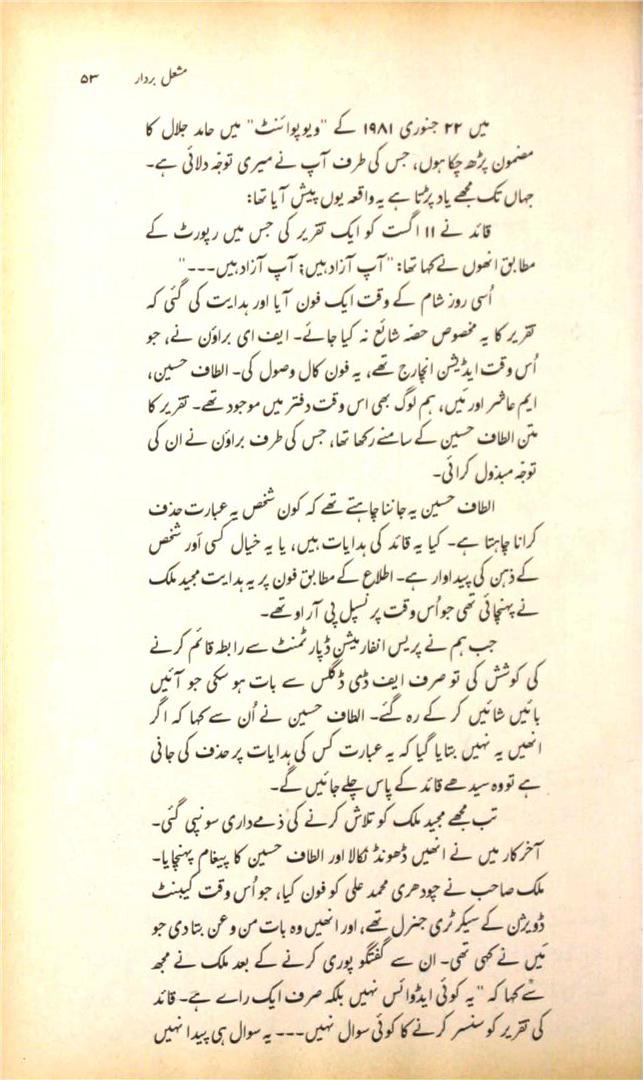 مشعل بردار ۵۳
میں ۲۲ جنوری ۱۹۸۱ کے "ویوپوائنٹ" میں حامد جلال کا
مضمون پڑھ چکا ہوں، جس کی طرف آپ نے میری توجّہ دلائی ہے۔
جہاں تک مجھے یاد پڑتا ہے یہ واقعہ یوں پیش آیا تھا:
قائد نے ۱۱ اگست کو ایک تقریر کی جس میں رپورٹ کے
مطابق انھوں نے کہا تھا: "آپ آزاد ہیں؛ آپ آزاد ہیں۔۔۔"
اُسی روز شام کے وقت ایک فون آیا اور ہدایت کی گئی کہ
تقریر کا یہ مخصوص حصّہ شائع نہ کیا جائے۔ ایف ای براؤن نے، جو
اُس وقت ایڈیشن انچارج تھے، یہ فون کال وصول کی۔ الطاف حسین،
ایم عاشر اور مَیں، ہم لوگ بھی اس وقت دفتر میں موجود تھے۔ تقریر کا
متن الطاف حسین کے سامنے رکھا تھا، جس کی طرف براؤن نے ان کی
توجّہ مبذول کرائی۔
الطاف حسین یہ جاننا چاہتے تھے کہ کون شخص یہ عبارت حذف
کرانا چاہتا ہے۔ کیا یہ قائد کی ہدایات ہیں، یا یہ خیال کسی اَور شخص
کے ذہن کی پیداوار ہے۔ اطلاع کے مطابق فون پر یہ ہدایت مجید ملک
نے پہنچائی تھی جو اُس وقت پرنسپل پی آر او تھے۔
جب ہم نے پریس انفارمیشن ڈپارٹمنٹ سے رابطہ قائم کرنے
کی کوشش کی تو صرف ایف ڈی ڈگلس سے بات ہو سکی جو آئیں
بائیں شائیں کر کے رہ گئے۔ الطاف حسین نے اُن سے کہا کہ اگر
انھیں یہ نہیں بتایا گیا کہ یہ عبارت کس کی ہدایات پر حذف کی جانی
ہے تو وہ سیدھے قائد کے پاس چلے جائیں گے۔
تب مجھے مجید ملک کو تلاش کرنے کی ذمے داری سونپی گئی۔
آخرکار میں نے انھیں ڈھونڈ نکالا اور الطاف حسین کا پیغام پہنچایا۔
ملک صاحب نے چودھری محمد علی کو فون کیا، جو اُس وقت کیبنٹ
ڈویژن کے سیکرٹری جنرل تھے، اور انھیں وہ بات من و عن بتا دی جو
مَیں نے کہی تھی۔ ان سے گفتگو پوری کرنے کے بعد ملک نے مجھ
سے کہا کہ "یہ کوئی ایڈوائس نہیں بلکہ صرف ایک راے ہے۔ قائد
کی تقریر کو سنسر کرنے کا کوئی سوال نہیں۔۔۔ یہ سوال ہی پیدا نہیں